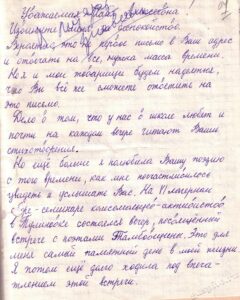 Уважаемая Майя Алексеевна
Извините за беспокойство.
Я знаю, что не первое письмо в Ваш адрес
и отвечать на все, нужна масса времени.
Но я и мои товарищи будем надеяться,
что Вы всё же сможете ответить на
это письмо.
Дело в том, что у нас в школе любят и
почти на каждом вечере читают Ваши
стихотворения.
Но ещё больше я полюбила Вашу поэзию
с того времени, как мне посчастливилось
увидеть и услышать Вас. На VI лагерном
семинаре комсомольцев-активистов
в Тулиновке состоялся вечер, посвящённый
встрече с поэтами Тамбовщины. Это для
меня самый памятный день в моей жизни.
Я потом ещё долго ходила под впеча-
тлением этой встречи.